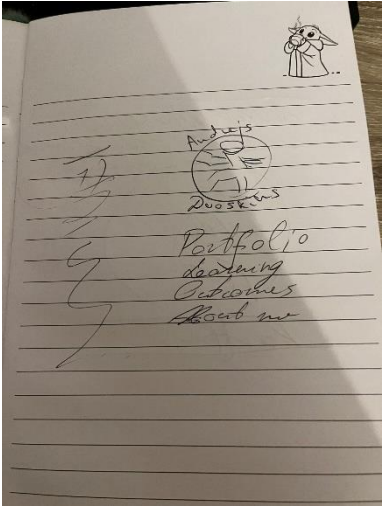 Andrejs
Dvoskins
Portfolio
Learning
Outcomes
About me